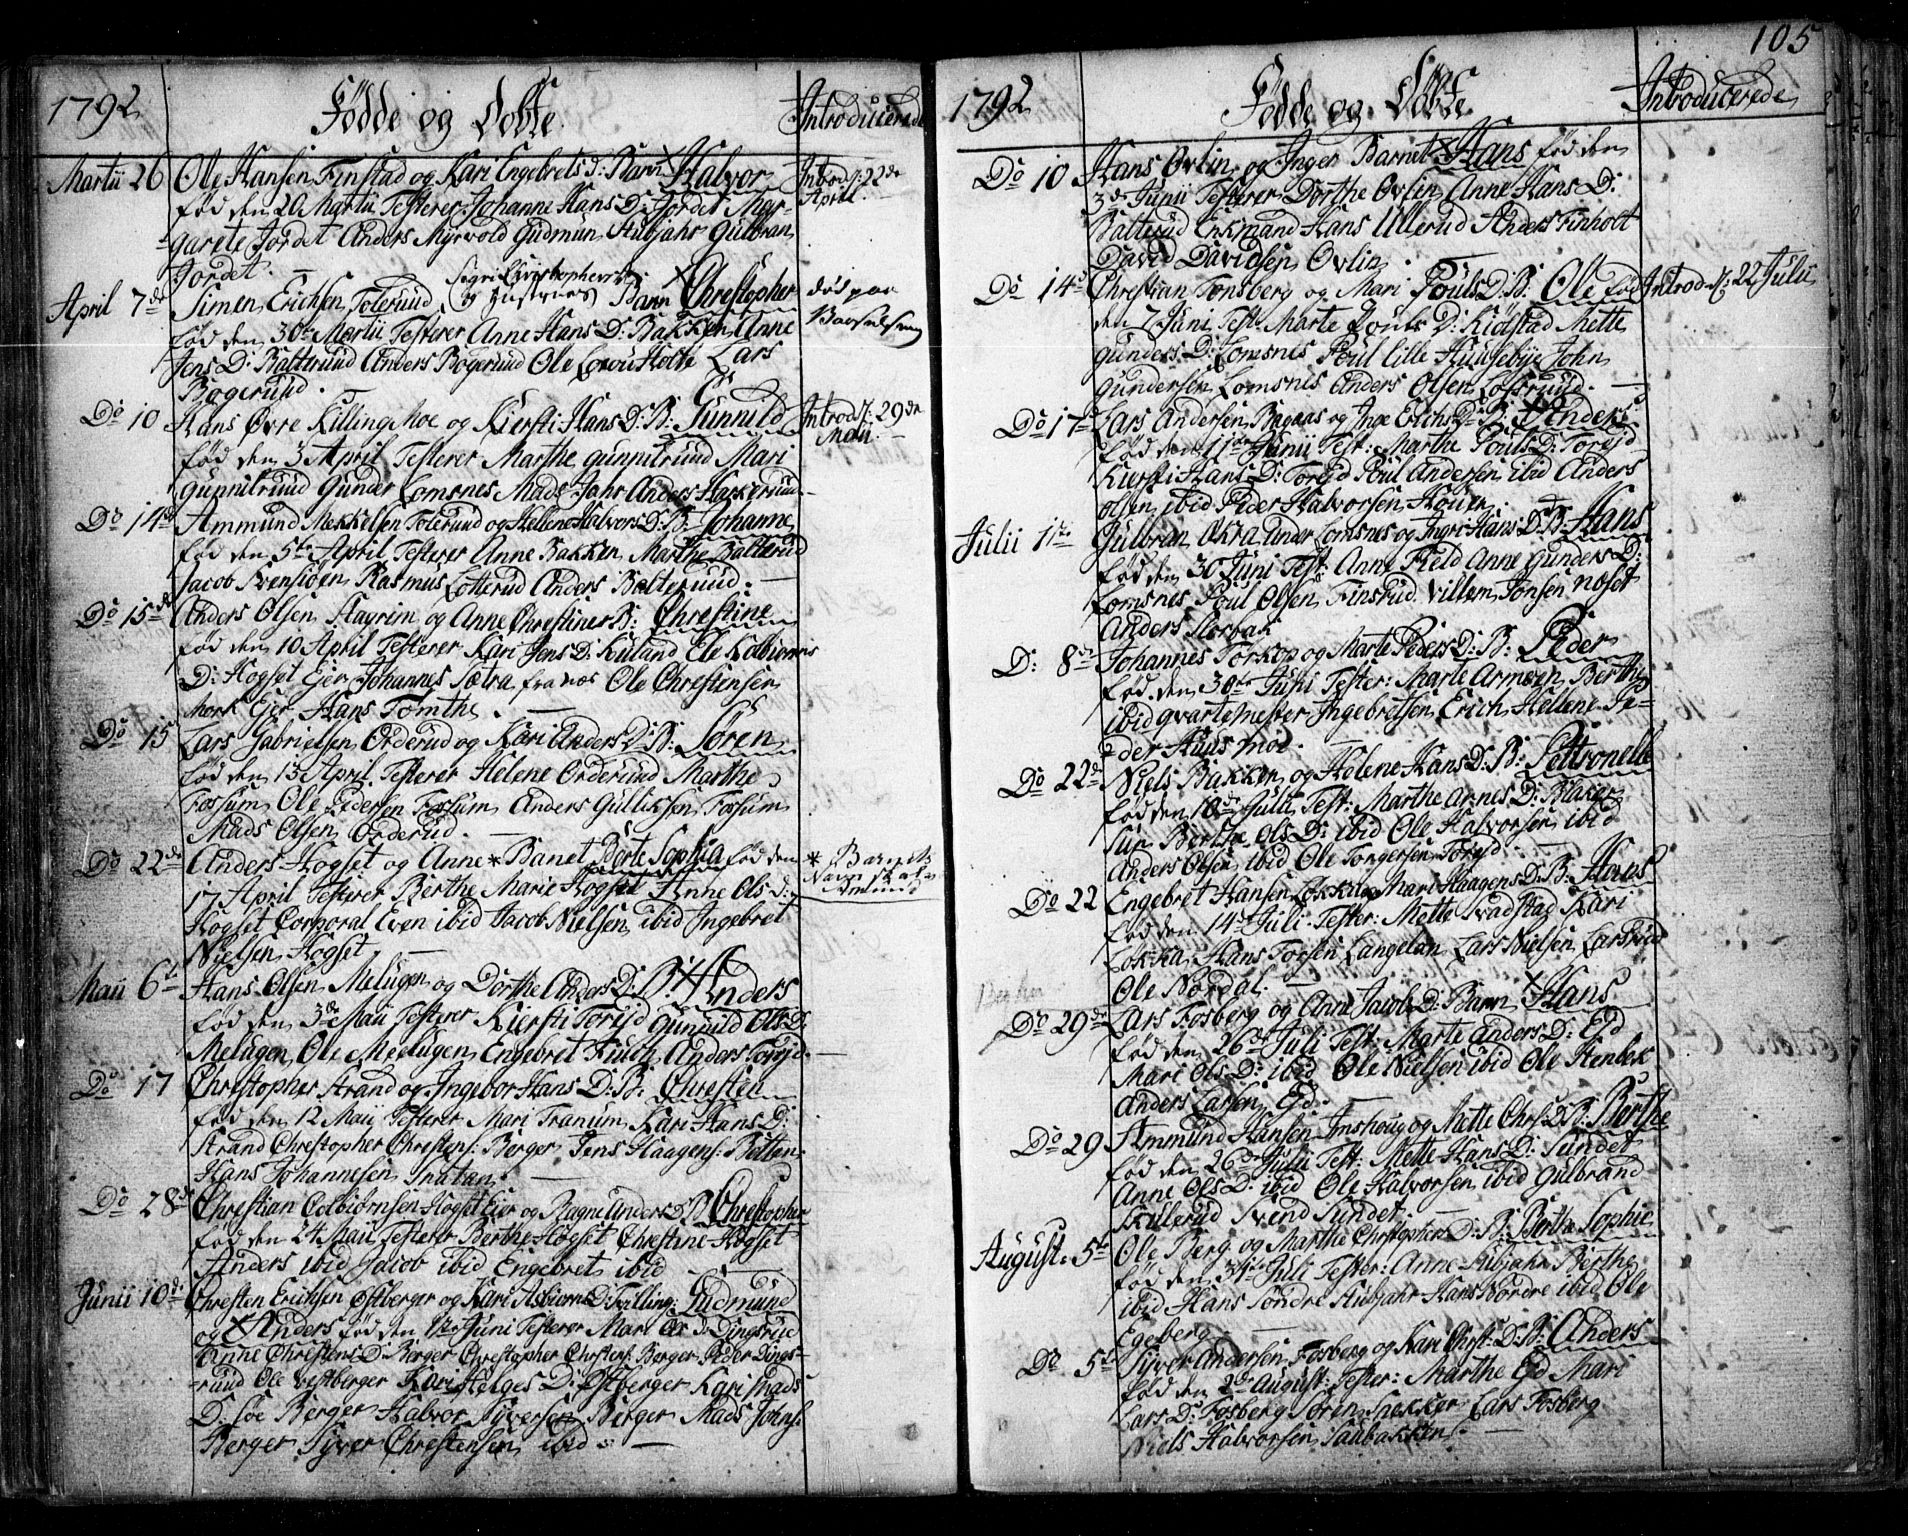 1792 Fødde og Døbte. Introducerede
Martii 26 Ole Hansen Finstad og Kari Engebrets D: Barn Halvor Introd: 22de
fød den 20 Martii Testerer Johanne Hans D: Jordet Mar- April
garete Jordet Anders Myrvold Gudmun Stubjahr Gulbran
Jordet. —
April 7de Simen Erichsen Tolerud Sigri Christophersd: og Barn Christopher død paa
fød den 30te Martii Testerer Anne Hans D: Bakken Anne Barselseng
Jens D: Balterud Anders Bøgerud Ole Holte Lars
Bøgerud.
Do 10 Hans Øvre Killingmoe og Kiersti Hans D: B: Gunnild Introd: 29de
fød den 3 April Testerer Marthe Gunnilrud Mari Maii. —
Gunnilrud Gunder Lomsnes Mads Jahr Anders Harkerud
Do 14de Ammund Mekkelsen Tolerud og Hellene Halvors D: B: Johanne
fød den 5te April Testerer Anne Bakken Marthe Balterud
Jacob Svensiøen Rasmus Lotterud Anders Balterud. —
Do 15de Anders Olsen Hagrim og Anne Christines B: Christine
fød den 10 April Testerer Kari Jens D: Kuland Ele Kolbiørns
D: Høgset Ejer Johannes Sætra fra nos Ole Christensen
Mork Ejer Hans Tomthe. —
Do 15 Lars Gabrielsen Orderud og Kari Anders D: B: Søren
fød den 13 April Testerer Helene Orderud Marthe
Fossum Ole Pedersen Fossum Anders Gulliksen Fossum
Mads Olsen Orderud. —
Do 22de Anders Høgset og Anne * Barnet Berte Sophia fød den * Barnets
17 April Testerer Berthe Marie Høgset Anne Ols d: Navn
Høgset Corporal Even ibid Jacob Nielsen ibid Ingebret
Nielsen Høgset —
Maii 6te Hans Olsen Melugen og Dorthe Anders D: B: Anders
fød den 3de Maii Testerer Kiersti Torejd Gunnild Ols D:
Melugen Ole Meelugen Engebret Anders Torejd. —
Do 17 Christopher Strand og Ingebor Hans D: B: Christen
fød den 12 Maii Testerer Mari Tranum Kari Hans D:
Strand Christopher Christens: Berger Jens Haagens: Botten
Hans Johannesen Snatan. —
Do 28de Christian Colbiørnsen Høgset Ejer og Ragne Anders D: B: Christopher
fød den 24 Maii Testerer Berthe Høgset Christine Høgset
Anders ibid Jacob ibid Engebret ibid —
Junii 10de Christen Erichsen Østberger og Kari Asbiørns D: Tvilling: Gudmund
og Anders fød den 1ste Juni Testerer Mari Ols d: Dingsrud
Anne Christens D: Berger Christopher Christens: Berger Peder Dings-
-rud Ole Vestberger Kari Helges D: Østberger Kari Mads
D: søe Berger Halvor Syversen Berger Mads Johns:
Berger Syver Christensen ibid. —
105
1792 Fødde og Døbte. Introducerede
Do 10 Hans Ovlin og Inger Barnet Hans fød den
3de Junii Testerer Dorthe Ovlin Anne Hans D:
Balterud Enkmand Hans Ullerud Anders Finholt
David Davidsen Ovlin. —
Do 14de Christian Tonsberg og Mari Pouls D: B: Ole fød Introd: 22 Julii
den 7 Juni Test: Marte Pouls D: Kidstad Mette
Gunders D: Lomsnes Poul lille Huusebye John
Gundersen Lomsnes Anders Olsen Løfsrud. —
Do 17de Lars Andersen Bagaas og Inge Erichs D: B: Anders
fød den 11te Junii Test: Marthe Pouls D: Torejd
Kiersti Hans D: Torejd Poul Andersen ibid Anders
Olsen ibid Peder Halvorsen Houer.
Julii 1ste Gulbran Okra under Lomsnes og Ingri Hans D: B: Hans
fød den 30 Juni Test: Anne Field Anne Gunders D:
Lomsnes Poul Olsen Finsrud Villem Jonsen Næset
Anders Storbak
D: 8de Johannes Torkop og Marte Peders D: B: Peder
fød den 30te Juni Tester: Marte Armoen Berthe
ibid Qvartemester Ingebretsen Erich Hellene Pe-
der Huusmoe. —
Do 22de Niels Bakken og Helene Hans D: B: Pettronelle
fød den 18de Julii Test: Marthe Arnes D: Blaker
Berthe Ols D: ibid Ole Halvorsen ibid
Anders Olsen ibid Ole Tongersen Torejd. —
Do 22 Engebret Hansen Løkka og Mari Haagens D: B: Hans
fød den 14de Juli Tester: Mette Svadstad Kari
Løkka Hans Torsen Langelan Lars Nielsen Larsrud
Ole Nordal. —
Do 29de Lars Fosberg og Anne Jacob D: Barn Hans
fød den 26de Juli Test: Marte Anders D: Ejd
Mari Ols D: ibid Ole Nielsen ibid Ole Stenbek
Anders Larsen Ejd. —
Do 29 Ammund Hansen Imshoug og Mette Chrs: D: B: Berthe
fød den 26de Julii Test: Mette Hans D: Sundet
Anne Ols D: ibid Ole Halvorsen ibid Gulbrand
Skullerud Svend Sundet. —
August: 5te Ole Berg og Marthe Christophers D: B: Berthe Sophie
fød den 31te Juli Tester: Anne Stubjahr Berthe
ibid Hans Søndre Stubjahr Hans Nordre ibid Ole
Egeberg —
Do 5te Syver Andersen Fosberg og Kari Christ: D: B: Anders
fød den 2de August: Tester: Marthe Ejd Mari
Lars D: Fosberg Søren Snekker Lars Fosberg
Niels Halvorsen Saubakken. —